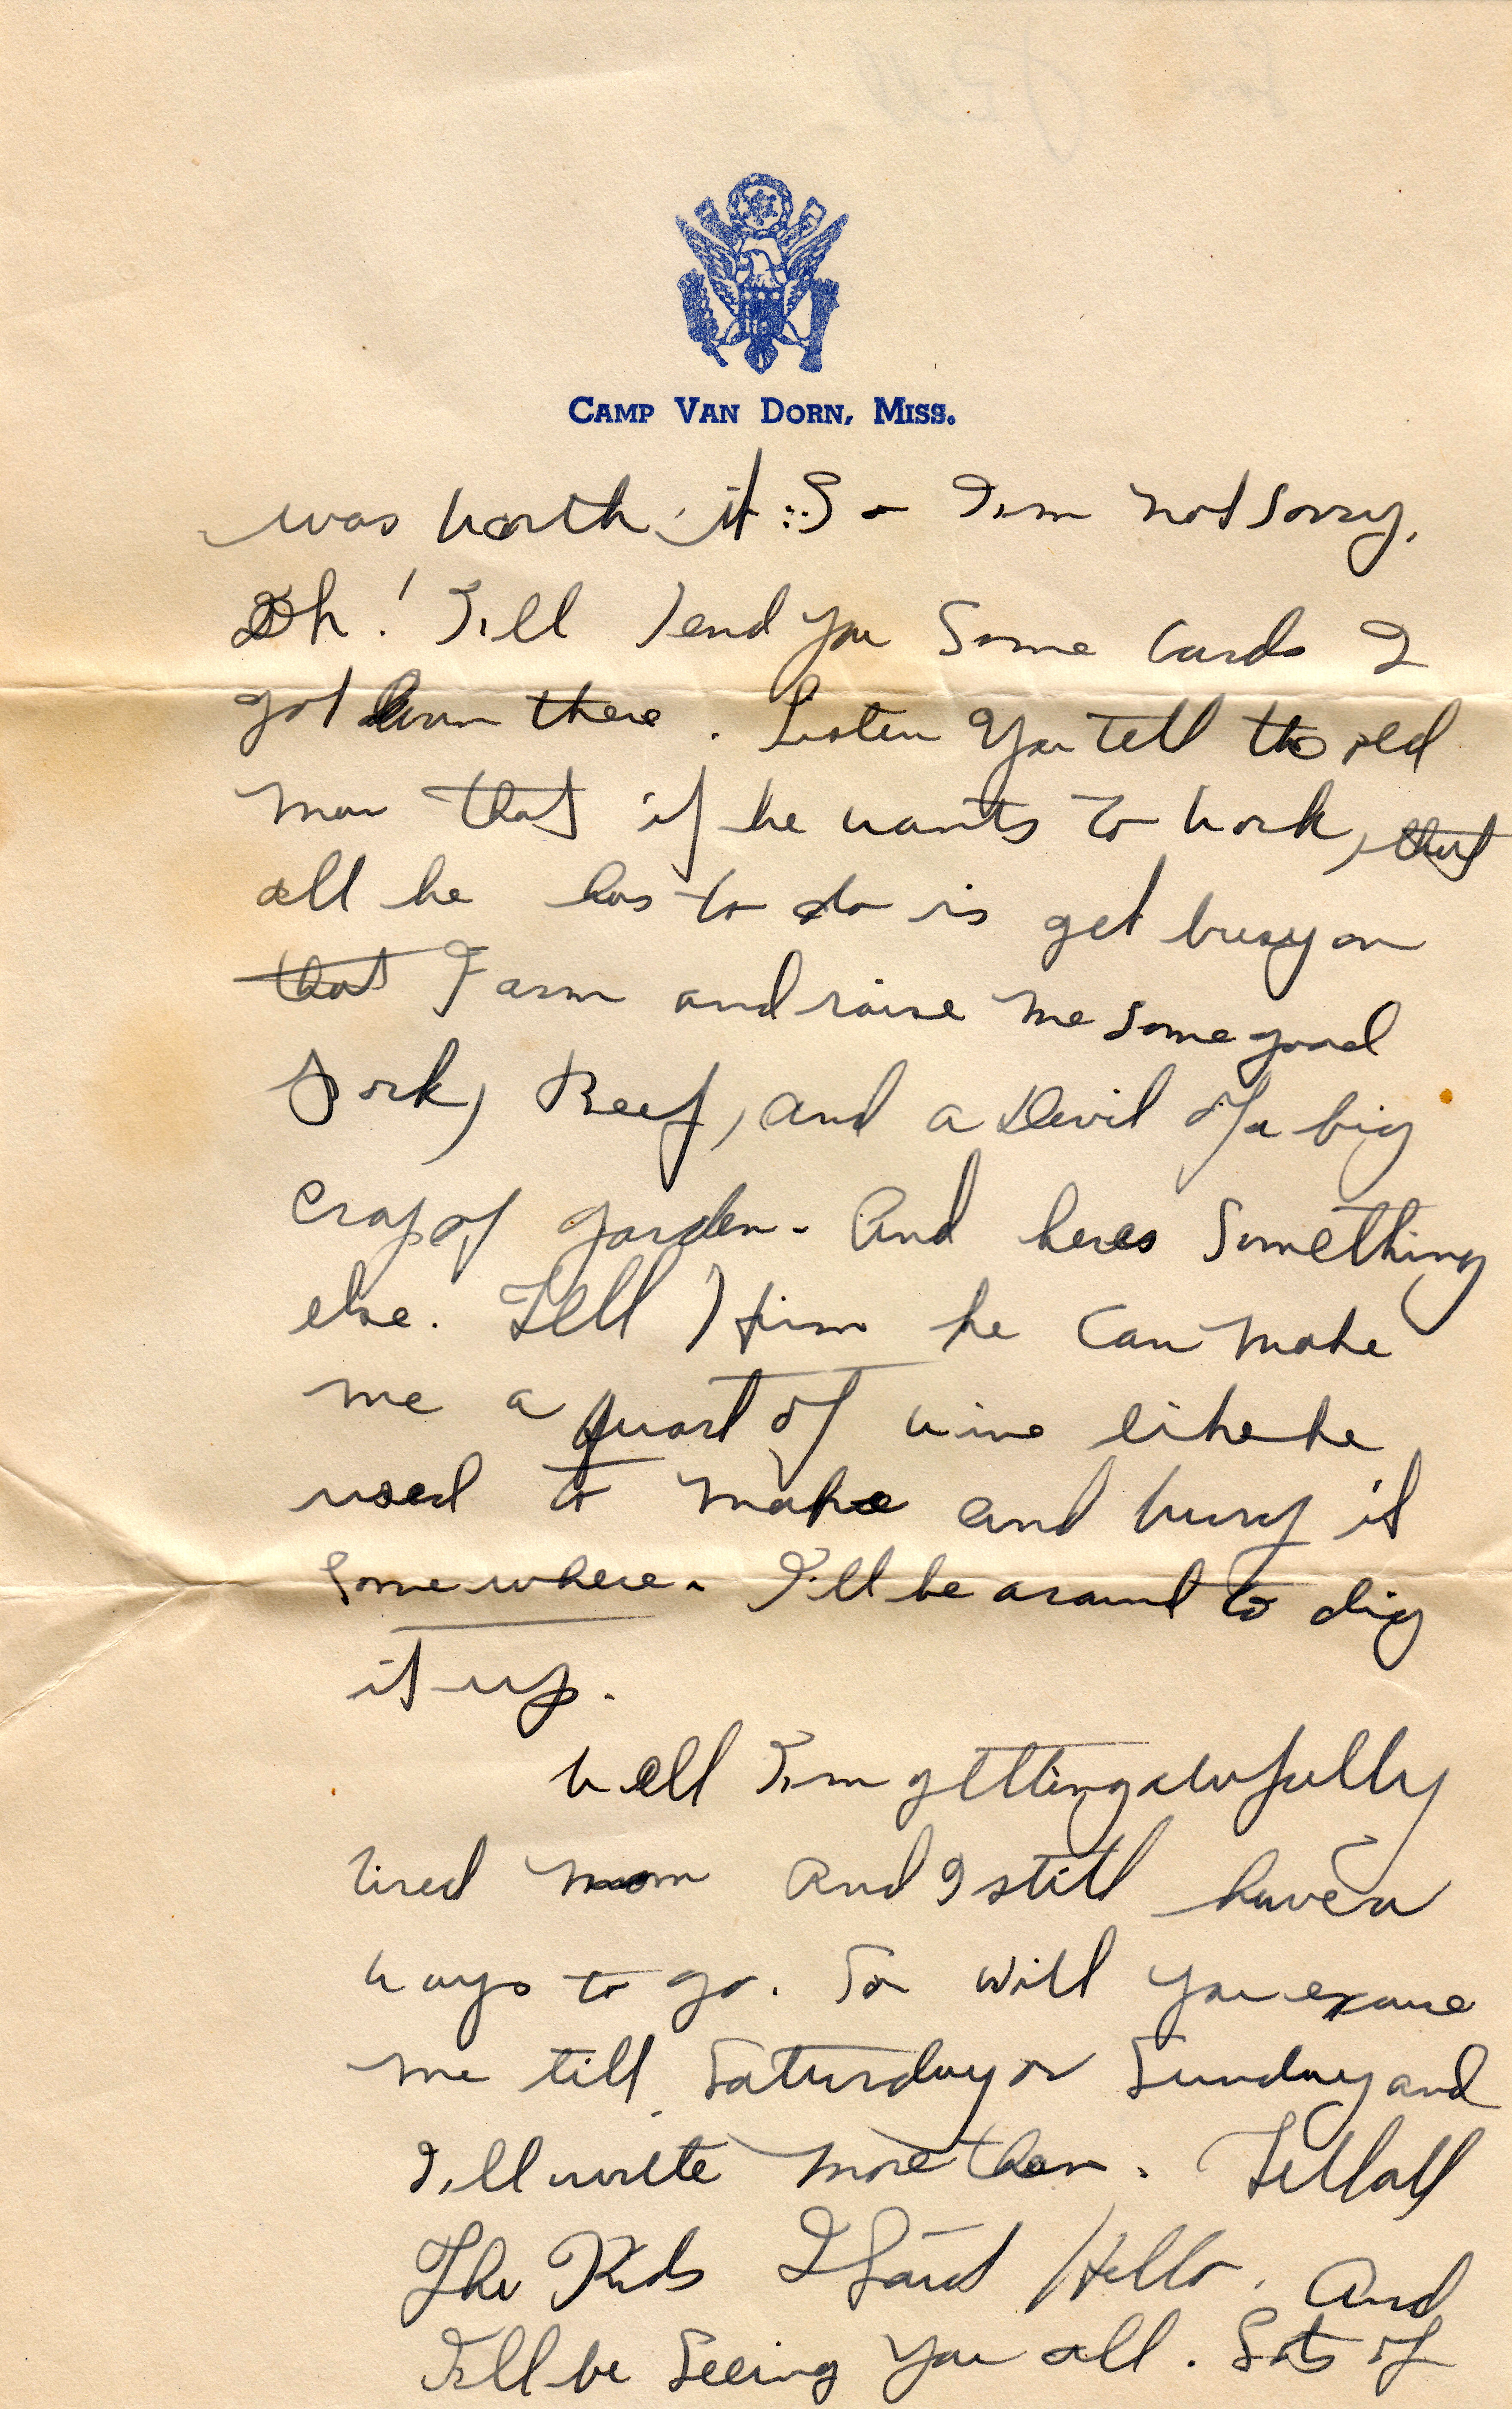 CAMP VAN DORN, MISS.
was worth it. So I'm not sorry.
Oh! I'll send you some cards I
got down there. Listen you tell the old
man that if he wants to work, that
all he has to do is get busy on
that Farm and raise me some good
Pork, Beef, and a Devil of a big
crop of garden. And heres something
else. Tell Him he can make
me a quart of wine like he
used to make and bury it
somewhere. I'll be around to dig
it up.
Well I'm getting awfully
tired mom and I still have a
ways to go. So will you excuse
me till Saturday or Sunday and
I'll write more then. Tell all
The Kids I said Hello. And
I'll be seeing you all. Lots of